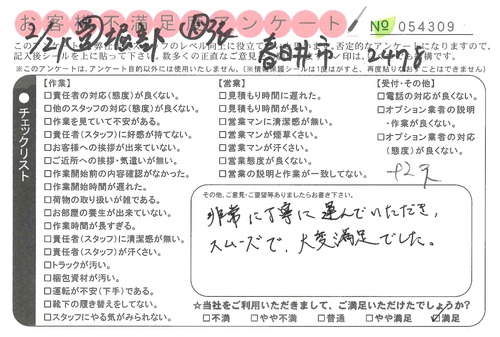 お客様不満足度アンケート
№ 054309
2/21
春日井市 2478
※このアンケートは、アンケート目的以外には使用いたしません。(※情報保護シールは1度はがすと、再度貼りなおすことはできません)
チェックリスト
【作業】
□責任者の対応(態度)が良くない。
□他のスタッフの対応(態度)が良くない。
□作業を見ていて不安がある。
□責任者(スタッフ)に好感が持てない。
□お客様への挨拶が出来ていない。
□ご近所への挨拶・気遣いが無い。
□作業開始前の内容確認がなかった。
□作業開始時間が遅れた。
□荷物の取り扱いが雑である。
□お部屋の養生が出来ていない。
□作業時間が長すぎる。
□責任者(スタッフ)に清潔感が無い。
□責任者(スタッフ)が汗くさい。
□トラックが汚い。
□梱包資材が汚い。
□運転が不安(下手)である。
□靴下の履き替えをしてない。
□スタッフにやる気がみられない。
【営業】
□見積もり時間に遅れた。
□見積もり時間が長い。
□営業マンに清潔感が無い。
□営業マンが煙草くさい。
□営業マンが汗くさい。
□営業態度が良くない。
□営業の説明と作業が一致してない。
【受付・その他】
□電話の対応が良くない。
□オプション業者の説明
・作業が良くない。
□オプション業者の対応
(態度)が良くない。
その他、ご意見・ご要望等ありましたらお書き下さい。
非常に丁寧に運んでいただき、
スムーズで、大変満足でした。
☆当社をご利用いただきまして、ご満足いただけたでしょうか?
□不満 □やや不満 □普通 □やや満足 □満足